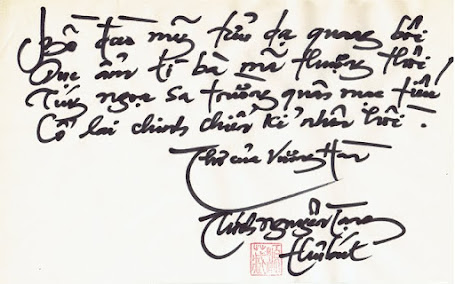 Bồ đào mỹ tửu dạ quang bôi
Dục ẩm tì bà mã thượng thôi!
Túy ngọa sa trường quân mạc tiếu
Cổ lai chinh chiến kỉ nhân hồi.
Thơ của Vương Hàn
bút